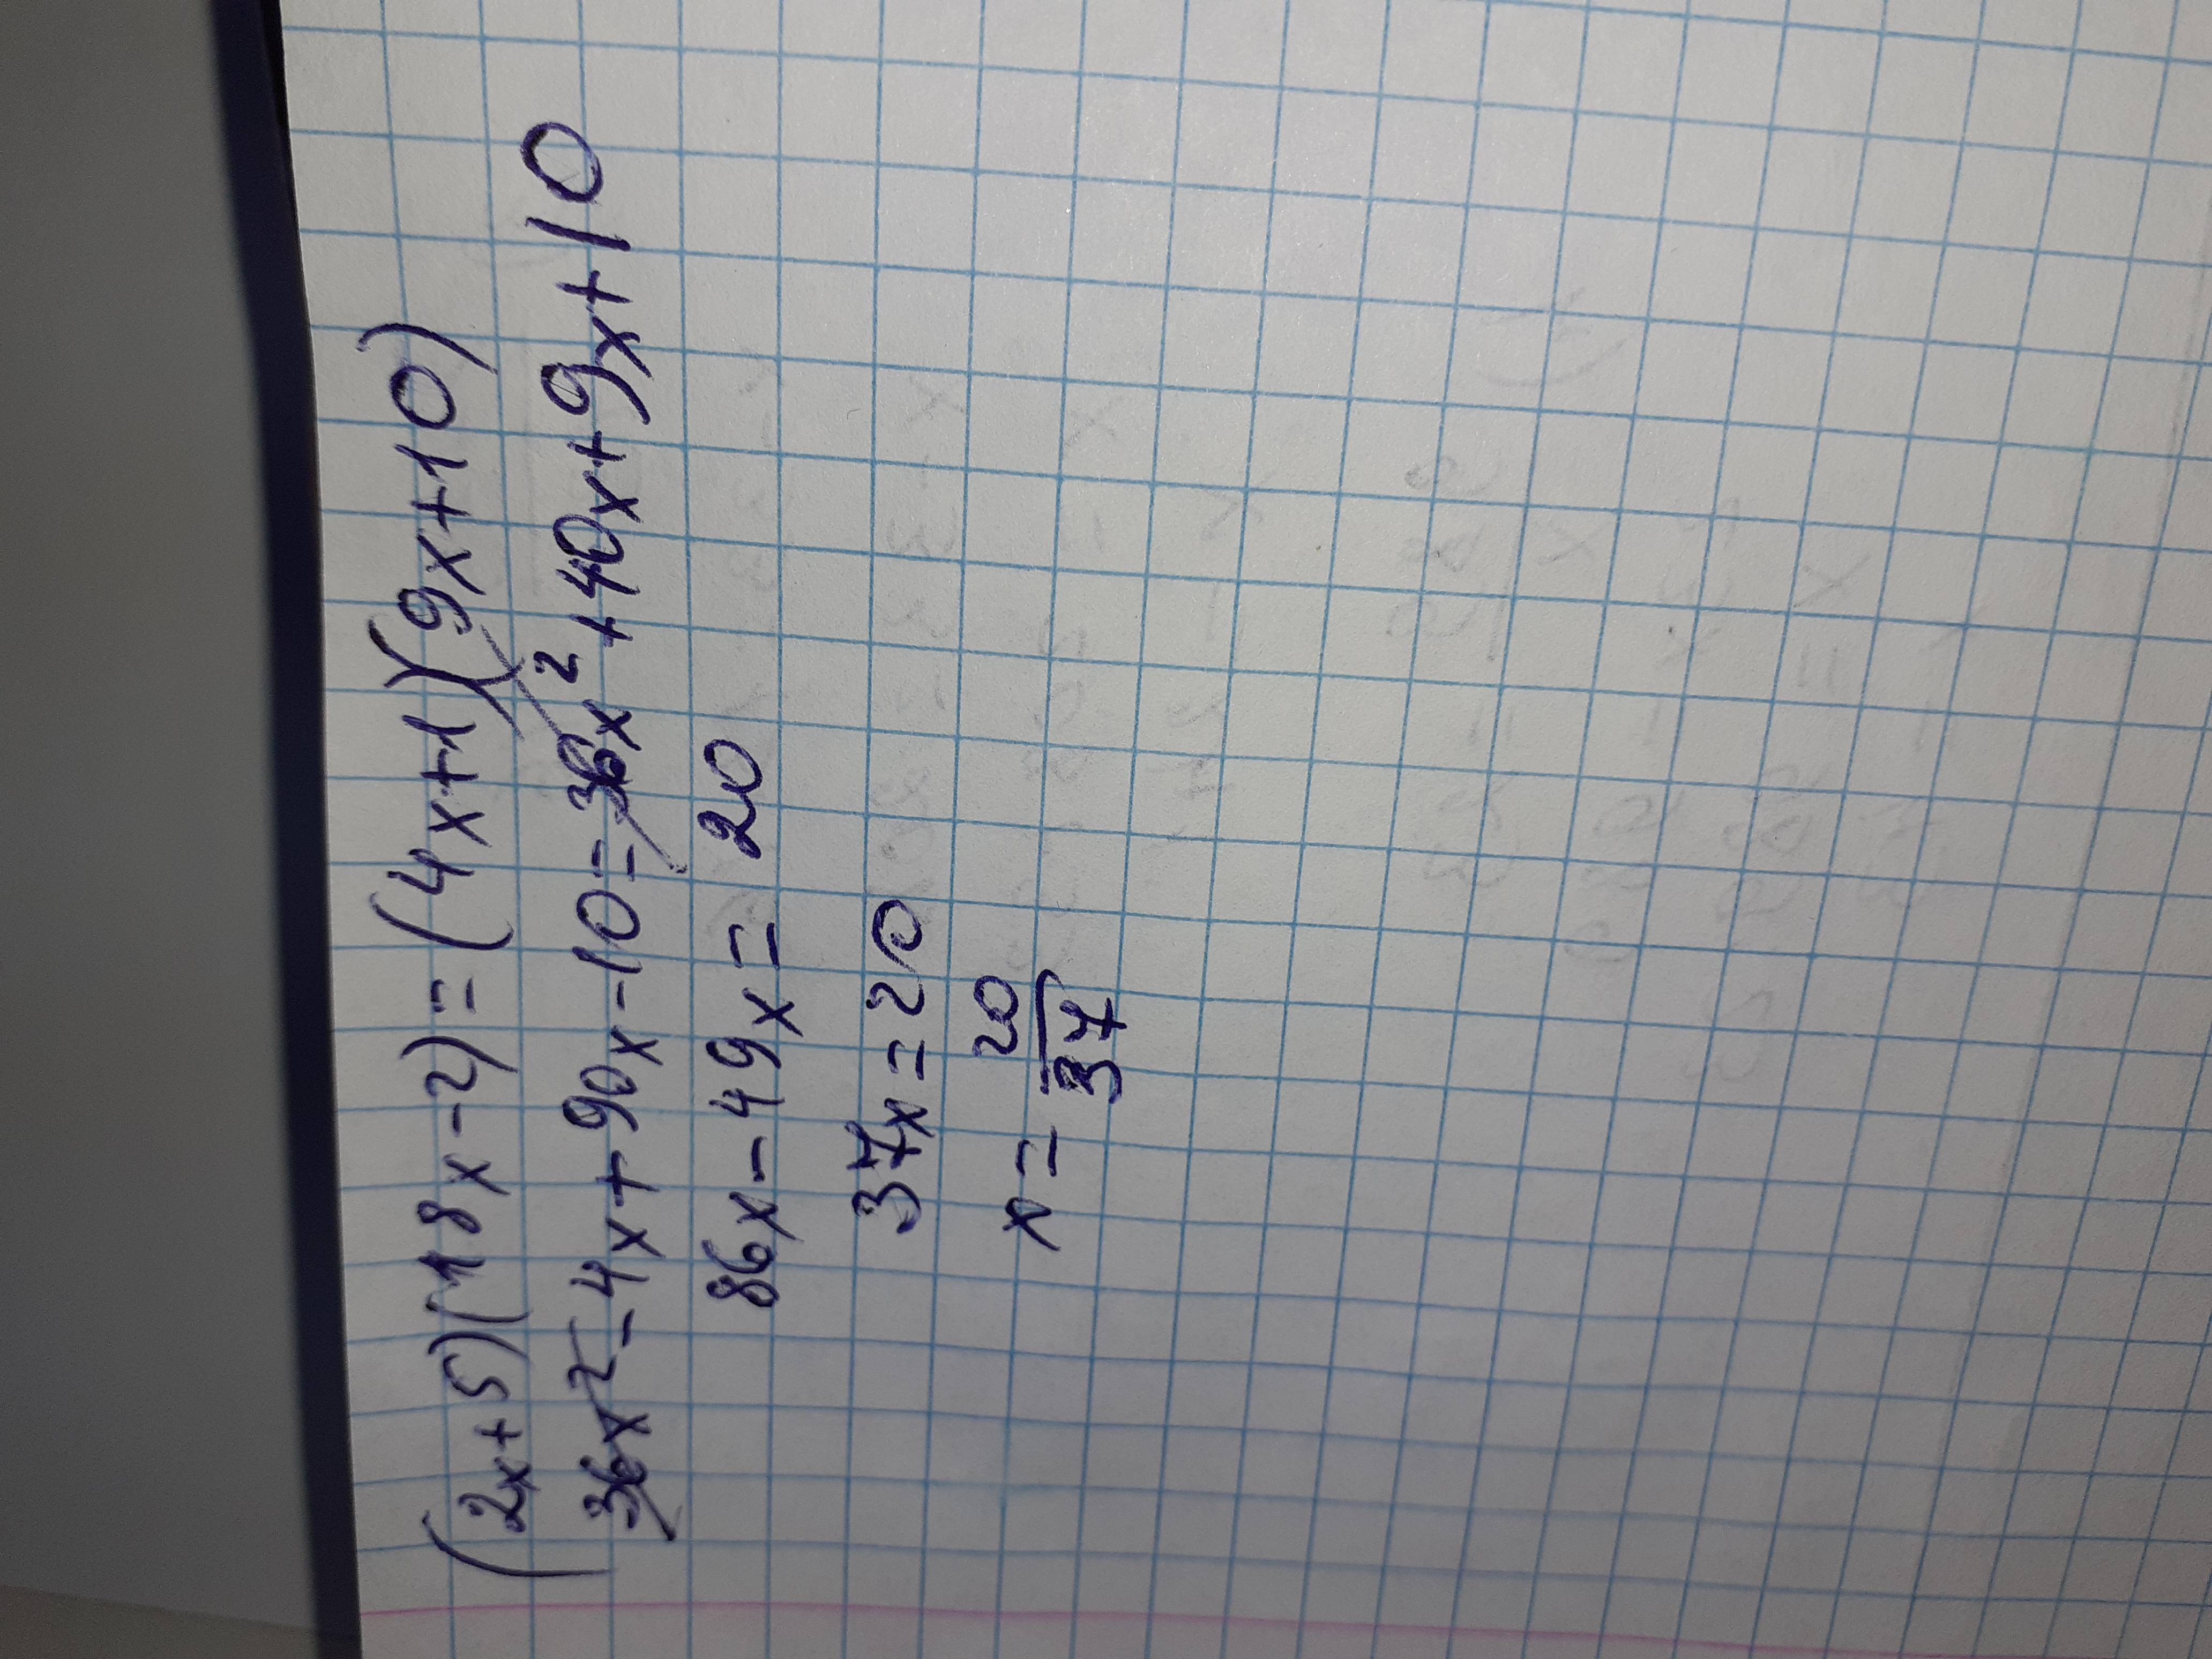 (2x+5)(18x-2)=(4x+1)(9x+10)
36x²-4x+90x-10=36x²+40x+9x+10
86x-49x=20
37x=20
x=20/37